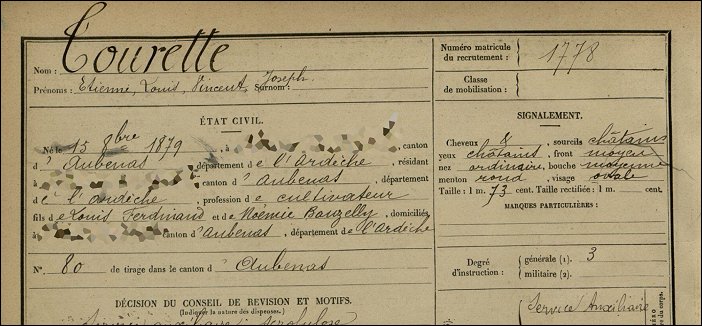 Tourette
Nom :
Joseph
Prénoms : Etienne, Louis, Vincent, Surnom :
ÉTAT CIVIL.
Né le 15 8bre 1879, à canton
d' Aubenas, département de l'Ardèche, résidant
à canton d'Aubenas, département
de l'ardèche, profession de cultivateur
fils de Louis Ferdinand et de Noémie, domiciliés
à canton d'Aubenas, département de l'Ardèche
N° 80 de tirage dans le canton d'Aubenas
DÉCISION DU CONSEIL DE REVISION ET MOTIFS.
(Indiquer la nature des dispenses.)
Numéro matricule
du recrutement : 1778
Classe
de mobilisation :
SIGNALEMENT.
Cheveux &, sourcils châtains
yeux châtains, front moyen
nez ordinaire, bouche moyenne
menton rond, visage ovale
Taille : 1 m. 73 cent. Taille rectifiée : 1 m. cent.
MARQUES PARTICULIÈRES :
Degré
d'instruction :
générale (1). 3
militaire (2).
Service Auxiliaire